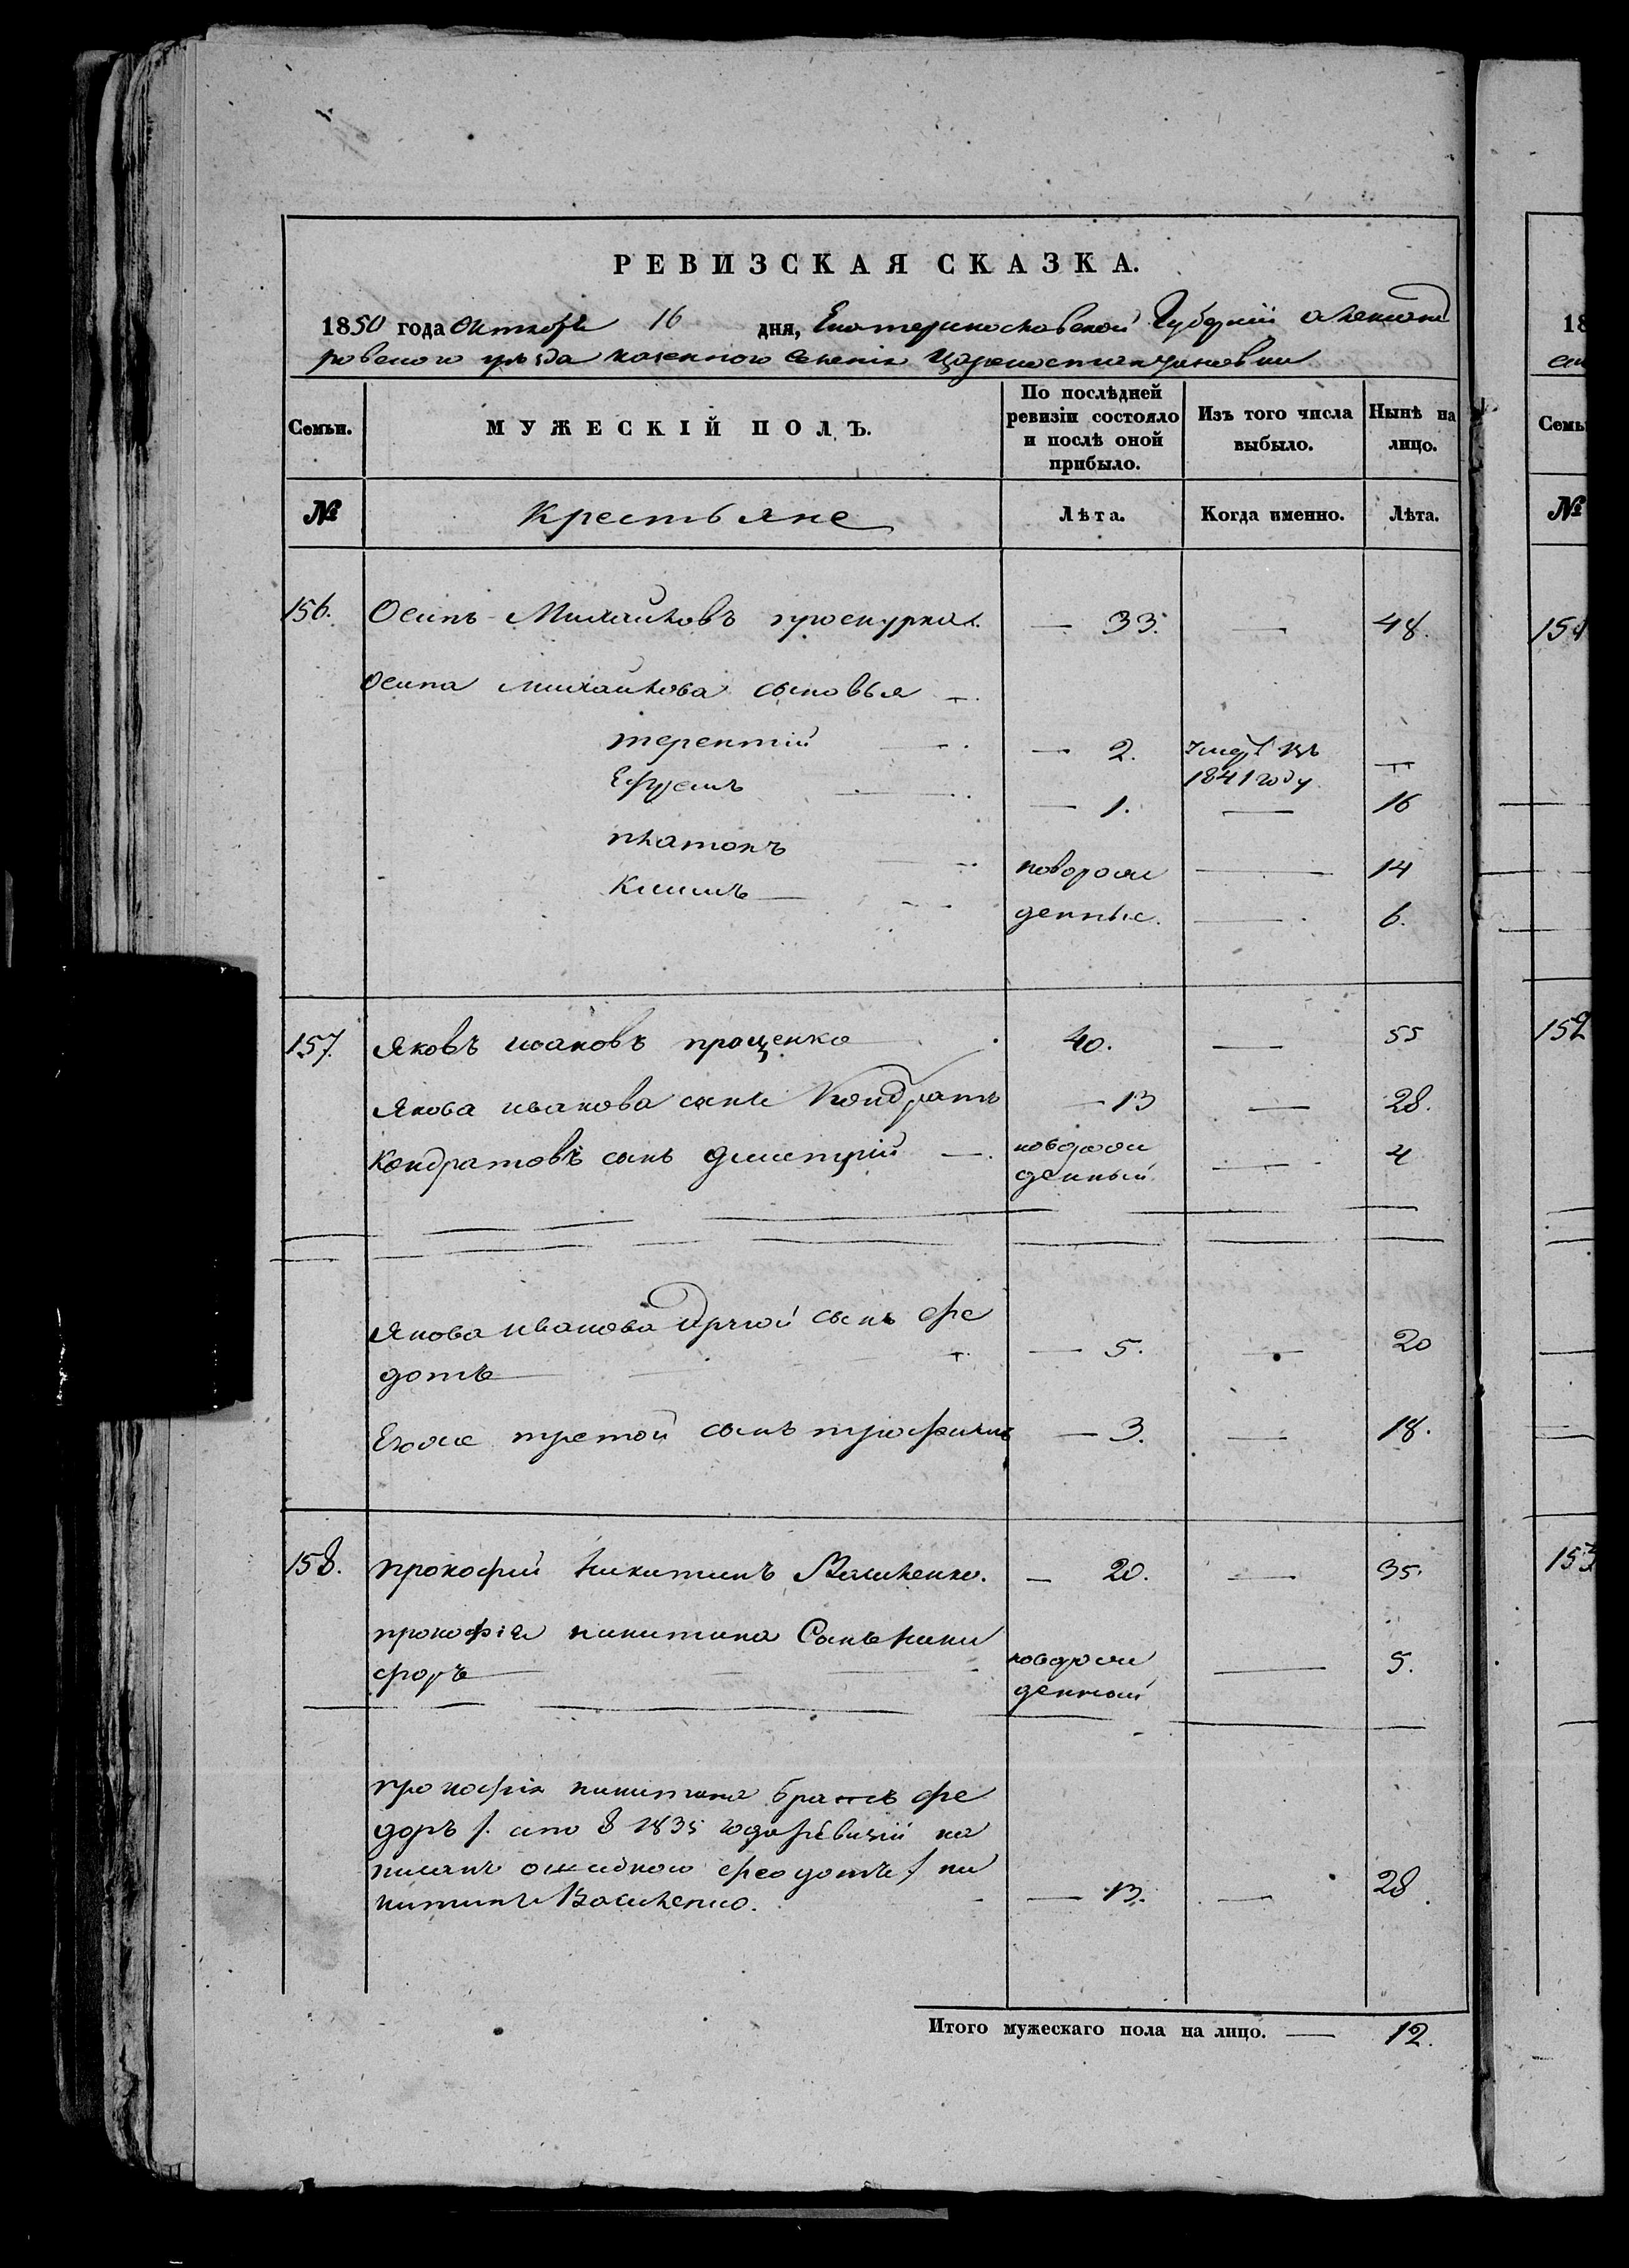 РЕВИЗСКАЯ СКАЗКА.
1850 года Октября 16 дня, Екатеринославской Губерній александ
ровского уѣзда казенного Селенія Цареконстантиновки
Семьи. МУЖЕСКІЙ ПОЛЪ. По послѣдней ревизіи состояло и послѣ оной прибыло. Изъ того числа выбыло. Нынѣ на лицо.
№ Крестьяне Лѣта. Когда именно. Лѣта.
156. Осипъ Михайловъ проскурня. — 33. — 48.
Осипа михайлова сыновья —
терентій — 2. умеръ въ 1841 году —
Ефремъ — 1. — 16
платонъ — 14
Климъ — новорож денные. — 6.
157. Яковъ ивановъ проценко 40. — 55
Якова иванова сынъ Кондратъ — 13 — 28.
Кондратовъ сынъ дмитрій — новорож денный. — 4
Якова иванова другой сынъ фе
дотъ — 5. — 20
Егоже третой сынъ трофимъ — 3. — 18.
158. прокофій Никитинъ Василенко. — 20. — 35.
прокофія никитина Сынъ Ники
форъ новорож денный — 5.
прокофія никитина братъ фе
доръ /. что в 1835 года ревизій на
писанъ ошибкою феодотъ / ни
китинъ Василенко. — 13. — 28.
Итого мужескаго пола на лицо. — 12.
18
Семьи
№
151
152
153